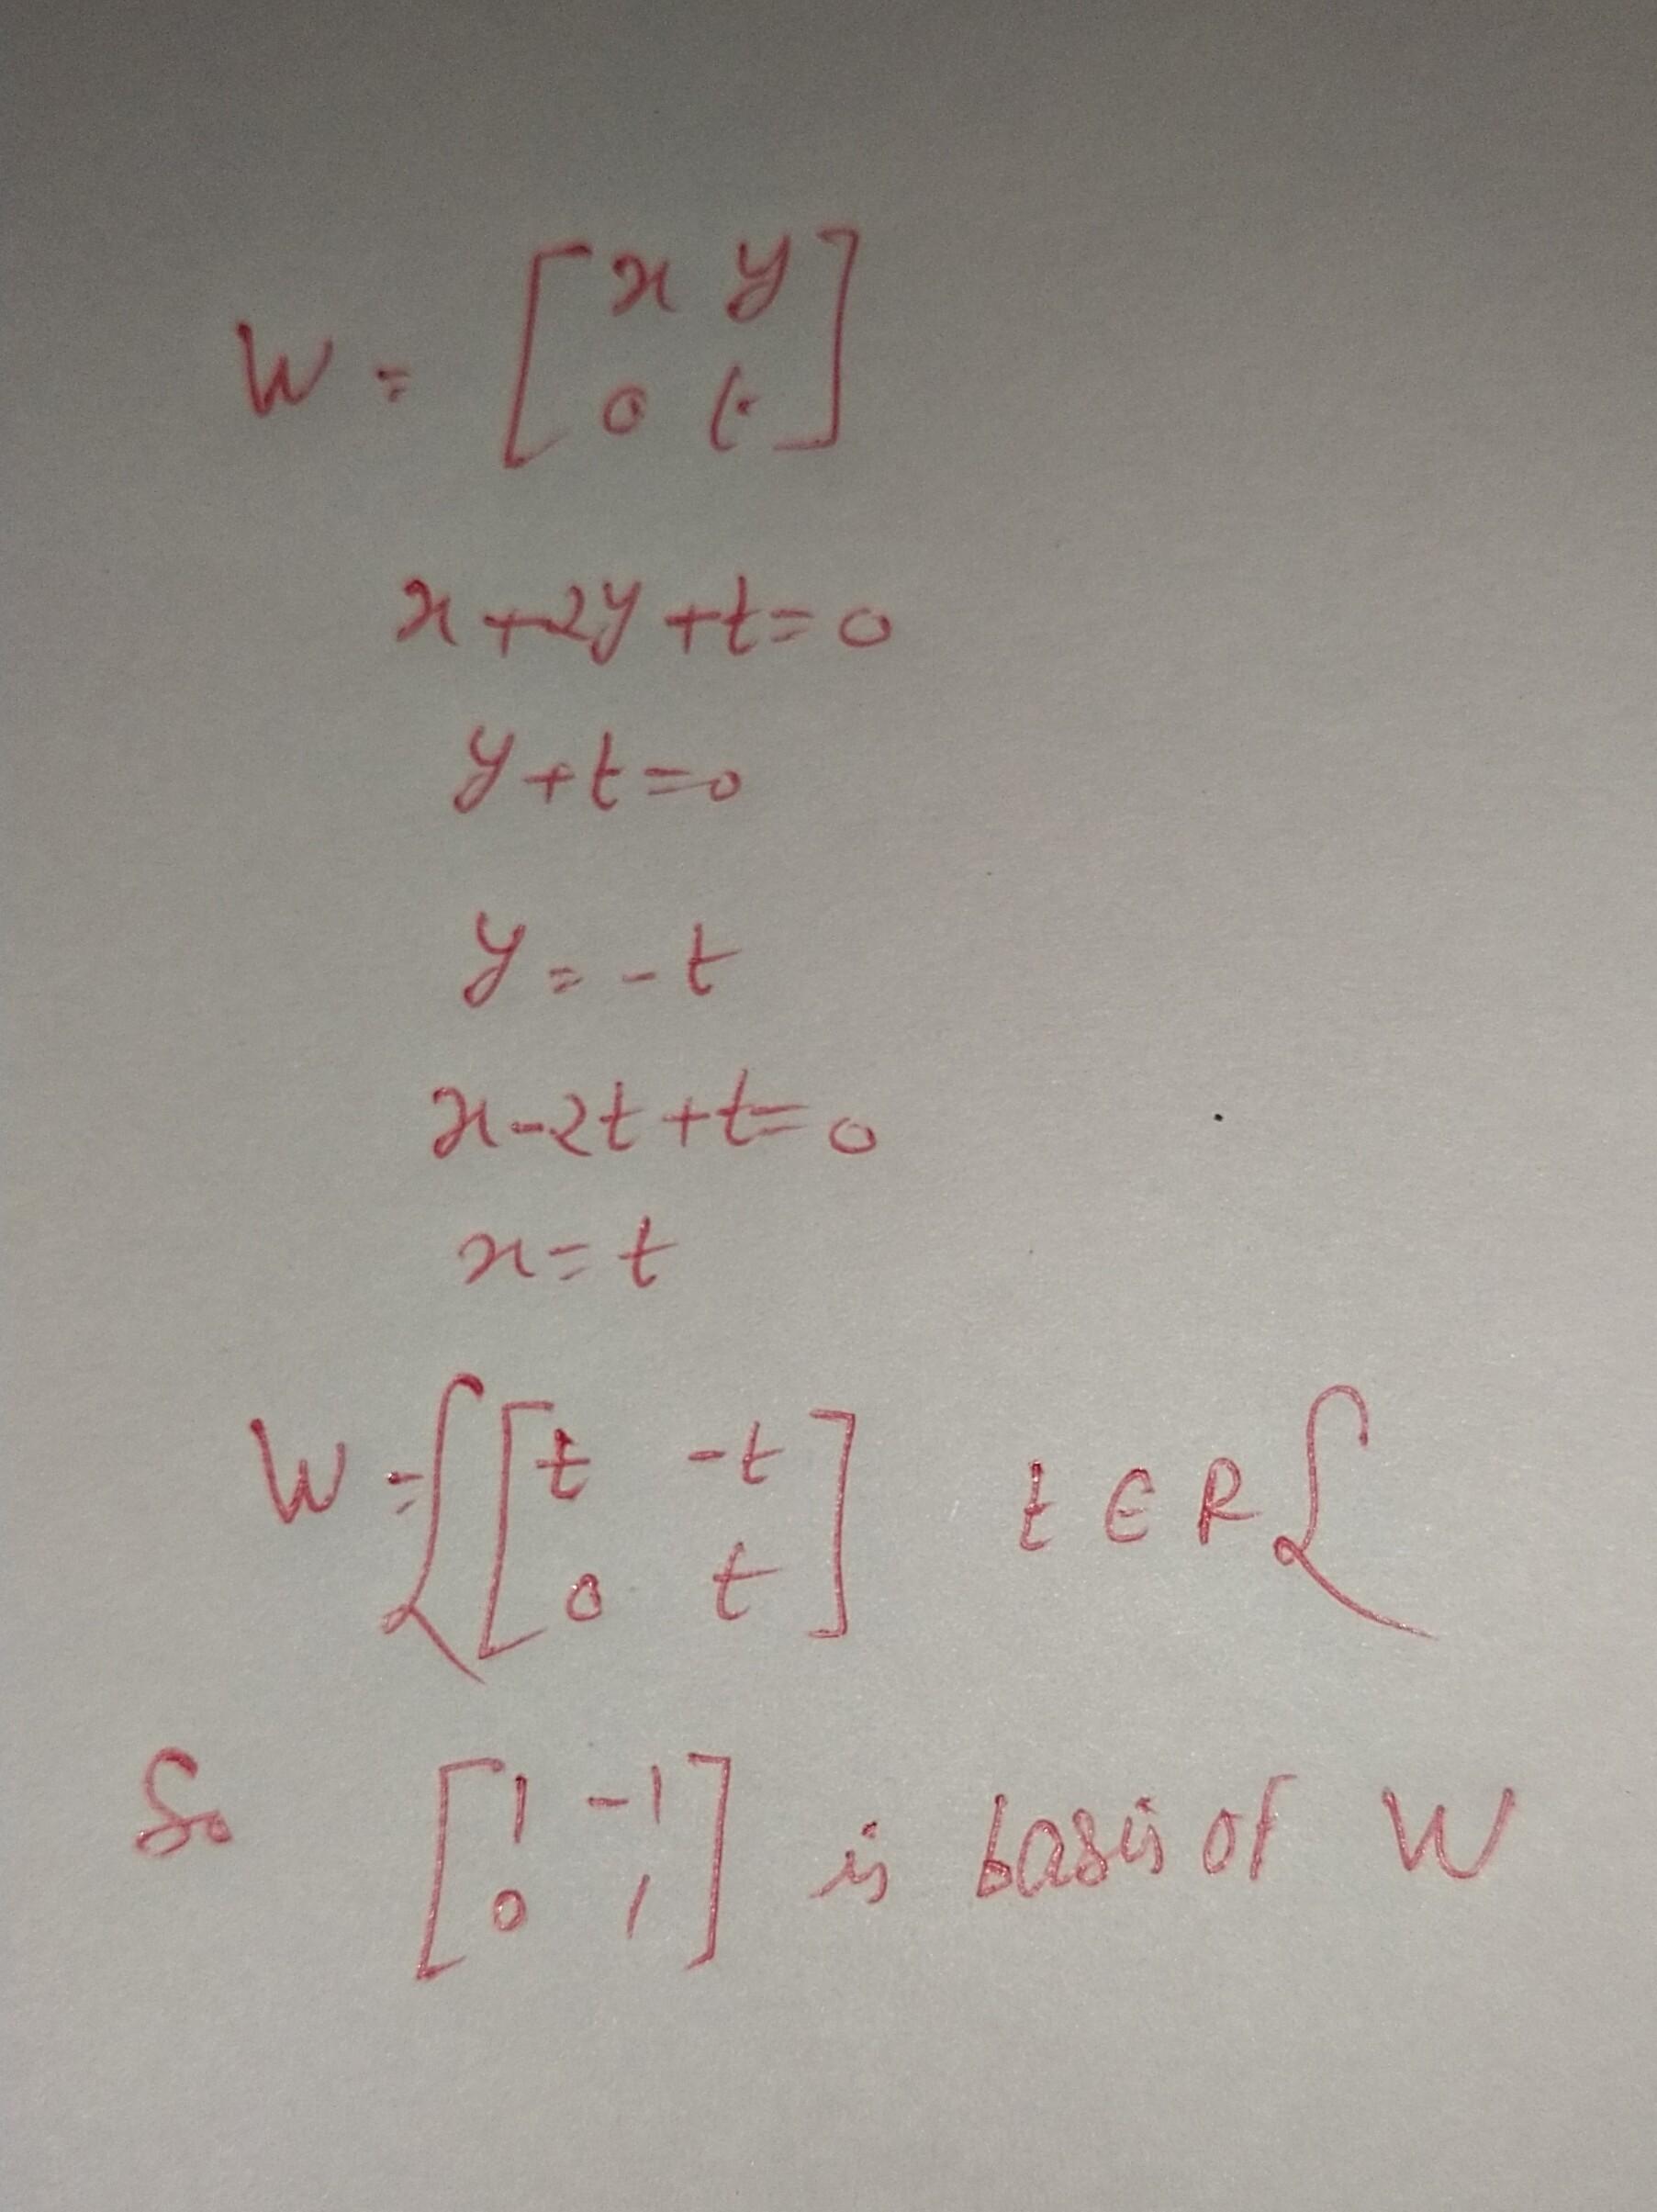 W = [ x y
0 t ]
x + 2y + t = 0
y + t = 0
y = -t
x - 2t + t = 0
x = t
W = { [ t -t
0 t ] t ∈ R {
So [ 1 -1
0 1 ] is basis of W